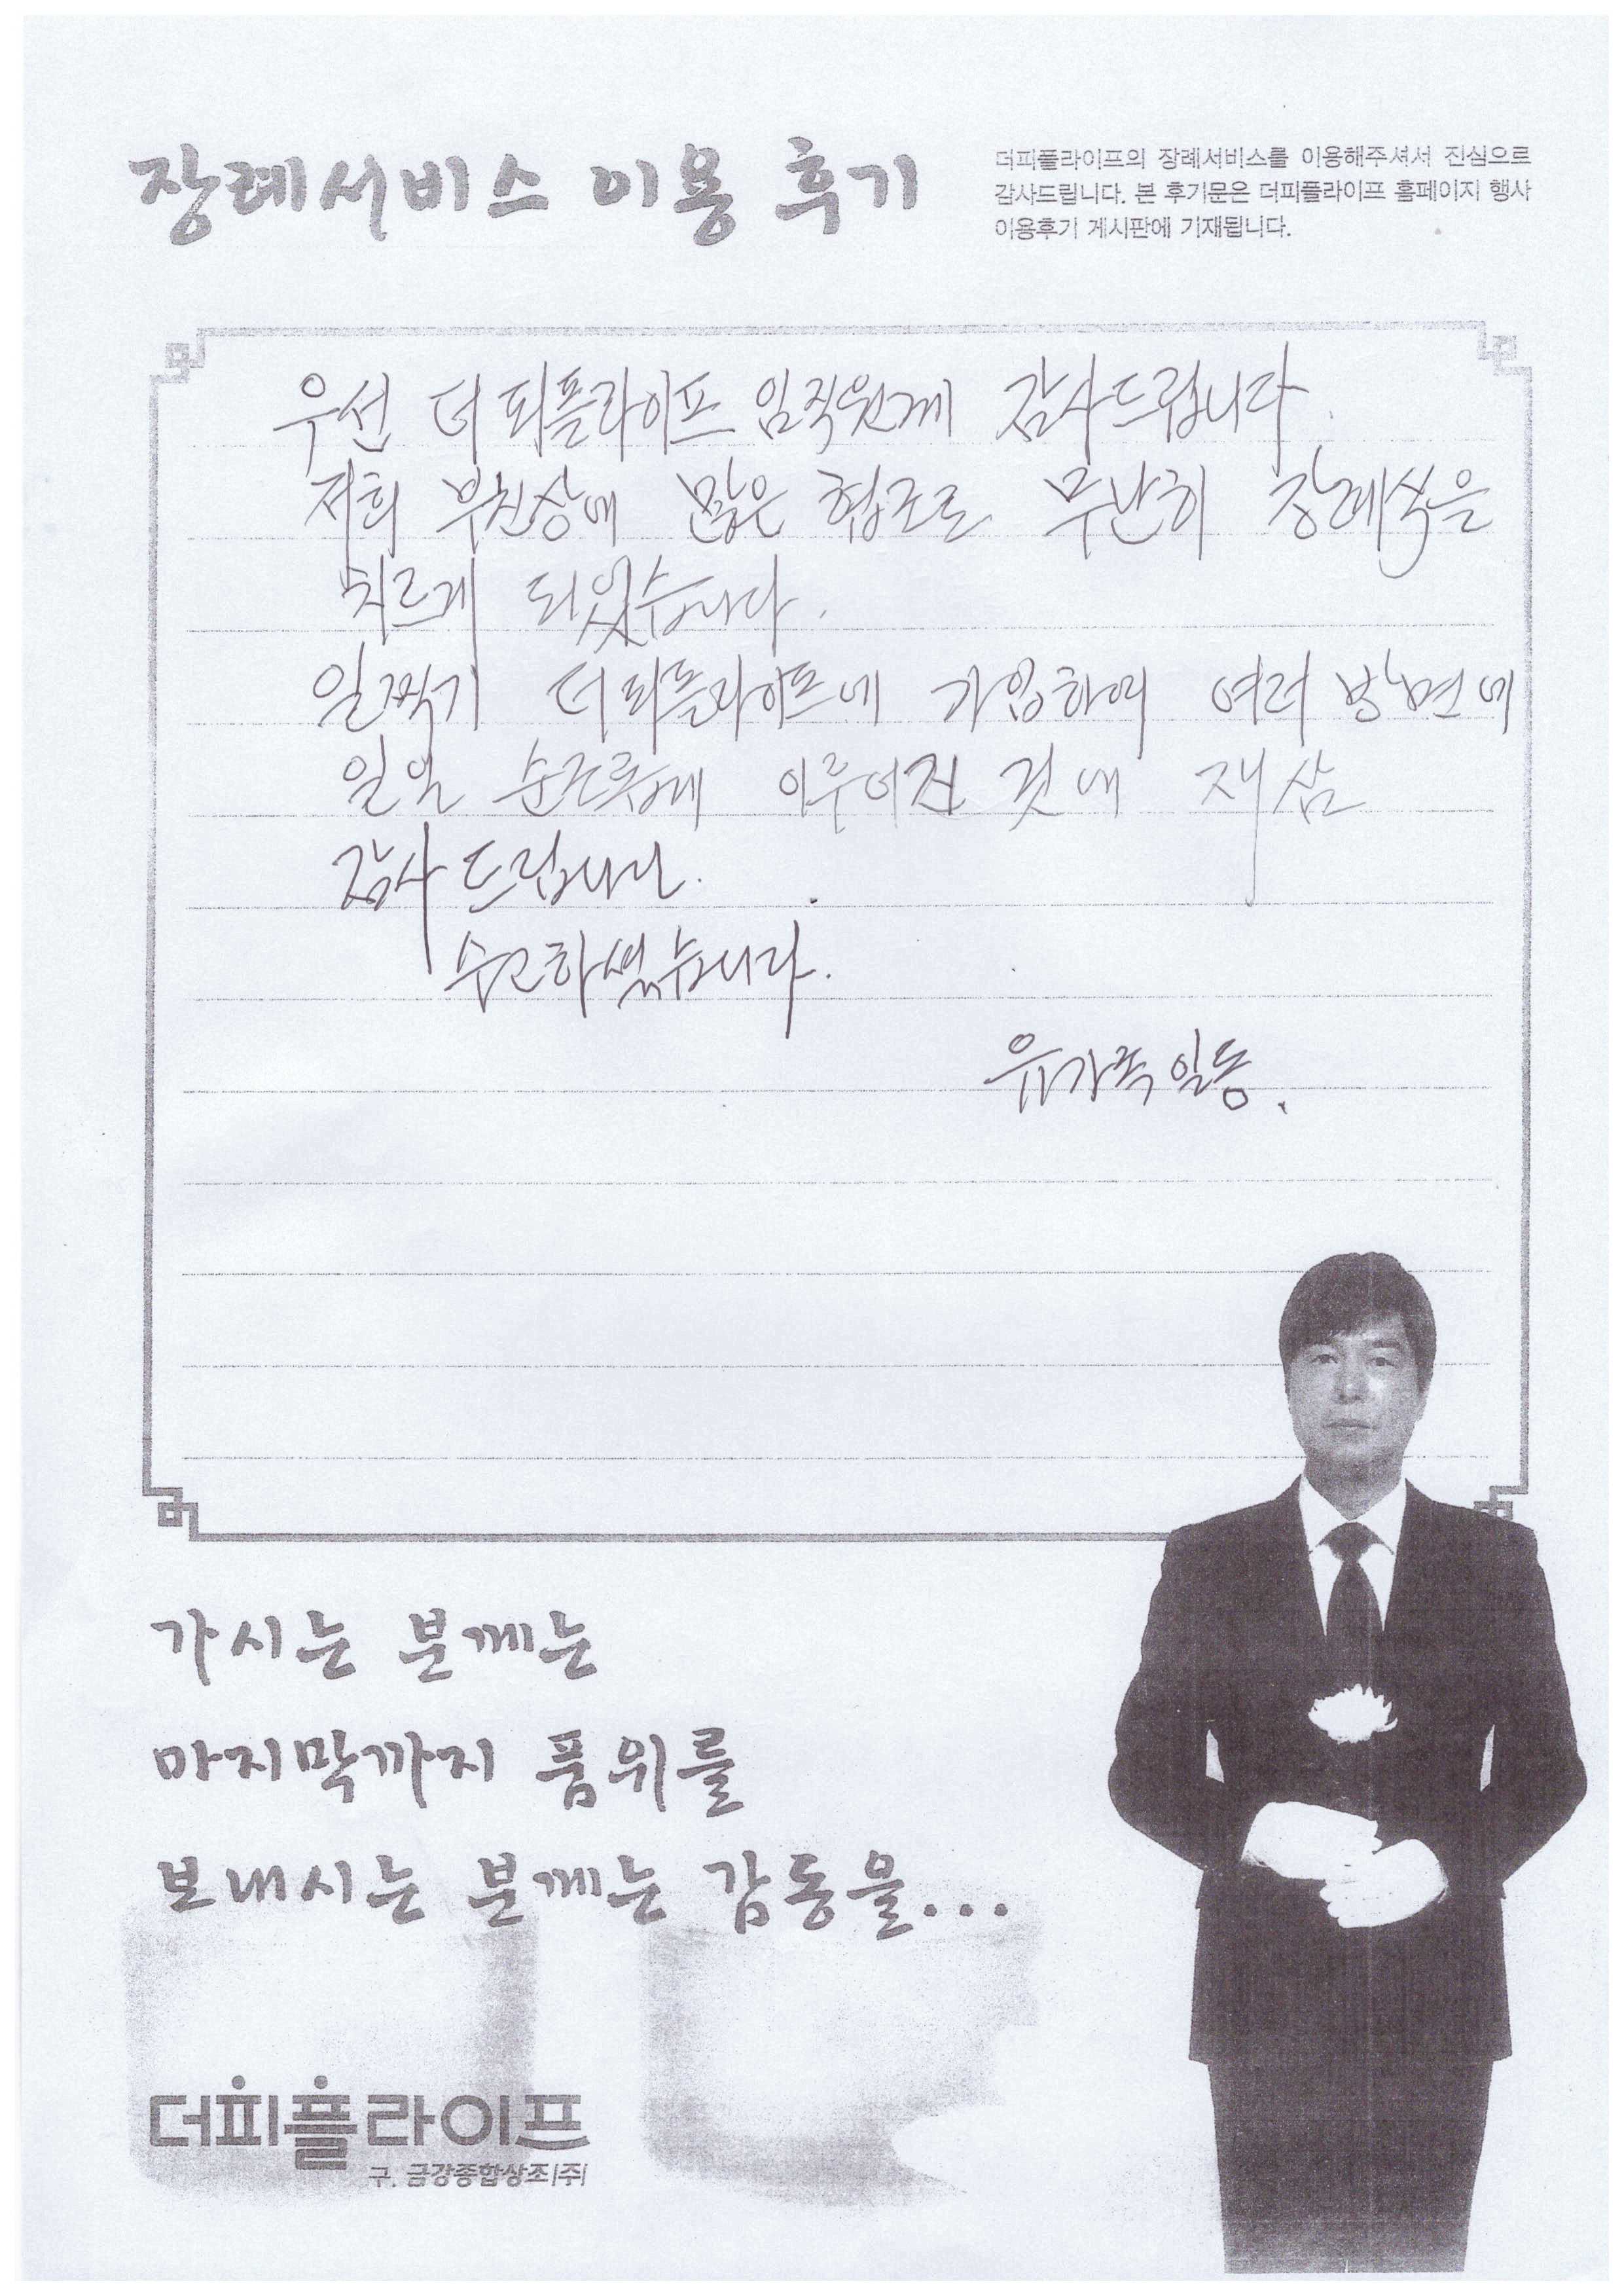 장례서비스 이용 후기
더피플라이프의 장례서비스를 이용해주셔서 진심으로
감사드립니다. 본 후기문은 더피플라이프 홈페이지 행사
이용후기 게시판에 기재됩니다.
우선 더피플라이프 임직원께 감사드립니다.
저희 부친상에 많은 협조로 무난히 장례식을
치르게 되었습니다.
일찍기 더피플라이프에 가입하여 여러 방면에
일일 순조롭게 이루어진 것에 재삼
감사드립니다.
수고하셨습니다.
유가족 일동.
가시는 분께는
마지막까지 품위를
보내시는 분께는 감동을...
더피플라이프
구. 금강종합상조(주)